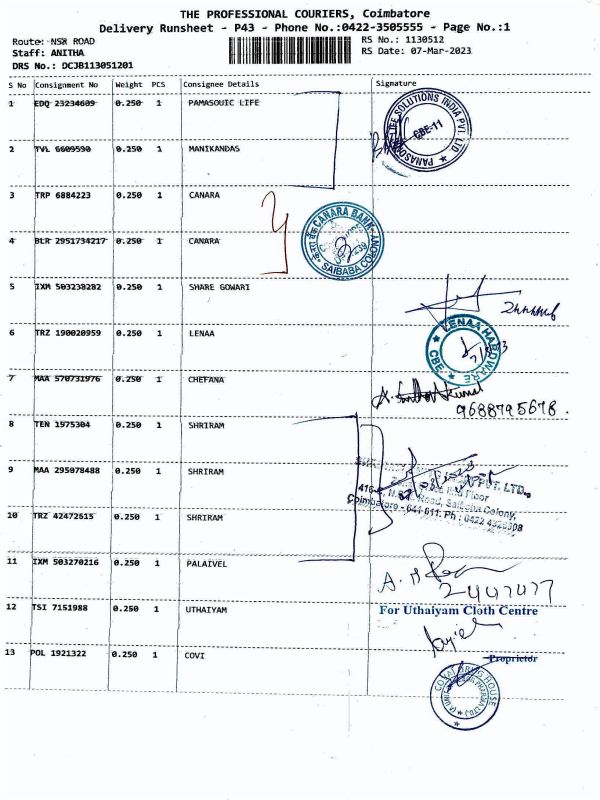 THE PROFESSIONAL COURIERS, Coimbatore
Delivery Runsheet - P43 - Phone No.:0422-3505555 - Page No.:1
Route: NSR ROAD
Staff: ANITHA
DRS No.: DCJB113051201
RS No.: 1130512
RS Date: 07-Mar-2023
S No Consignment No Weight PCS Consignee Details Signature
1 EDQ 23234609 0.250 1 PAMASOUIC LIFE
SOLUTIONS INDIA PVT. LTD.
CBE-11
2 TVL 6609590 0.250 1 MANIKANDAS
3 TRP 6884223 0.250 1 CANARA
CANARA BANK
SAIBABA COLONY
4 BLR 2951734217 0.250 1 CANARA
5 IXM 503238282 0.250 1 SHARE GOWARI
6 TRZ 190020959 0.250 1 LENAA
LENAA HARDWARE
CBE
7 MAA 570731976 0.250 1 CHEFANA
9688795678.
8 TEN 1975304 0.250 1 SHRIRAM
9 MAA 295078488 0.250 1 SHRIRAM
PVT. LTD.,
Road, Saibaba Colony,
10 TRZ 42472615 0.250 1 SHRIRAM
Coimbatore - 641 011. Ph : 0422
11 IXM 503270216 0.250 1 PALAIVEL
12 TSI 7151988 0.250 1 UTHAIYAM
For Uthaiyam Cloth Centre
13 POL 1921322 0.250 1 COVI
Proprietor